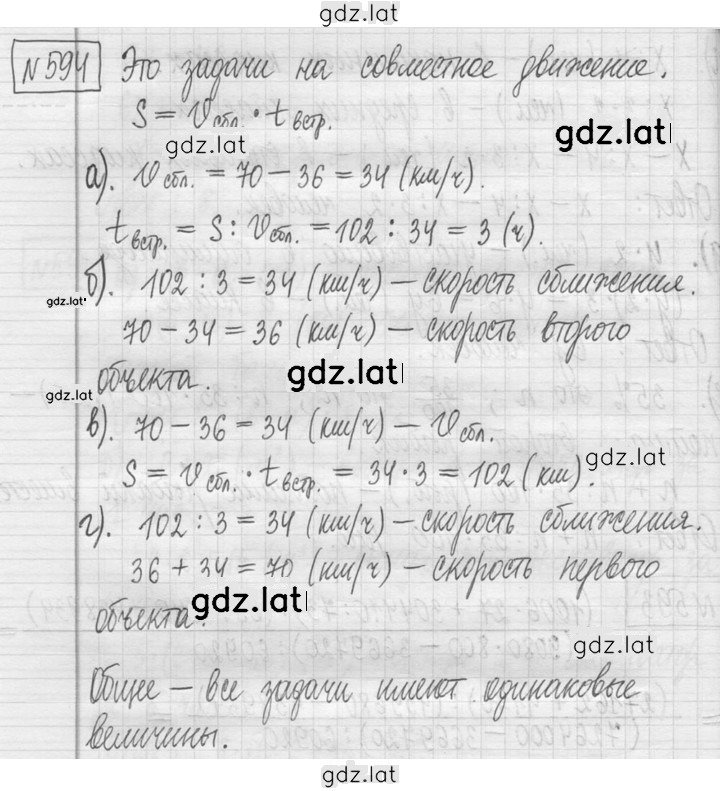 gdz.lat
№594 Это задачи на совместное движение.
S = Vсбл. · tвстр.
gdz.lat
gdz.lat
а). Vсбл. = 70 – 36 = 34 (км/ч).
tвстр. = S : Vсбл. = 102 : 34 = 3 (ч).
б). 102 : 3 = 34 (км/ч) – скорость сближения.
gdz.lat
70 – 34 = 36 (км/ч) – скорость второго
объекта.
gdz.lat
gdz.lat
в). 70 – 36 = 34 (км/ч) – Vсбл.
S = Vсбл. · tвстр. = 34 · 3 = 102 (км).
gdz.lat
г). 102 : 3 = 34 (км/ч) – скорость сближения.
36 + 34 = 70 (км/ч) – скорость первого
объекта.
gdz.lat
gdz.lat
Общее – все задачи имеют одинаковые
величины.
gdz.lat